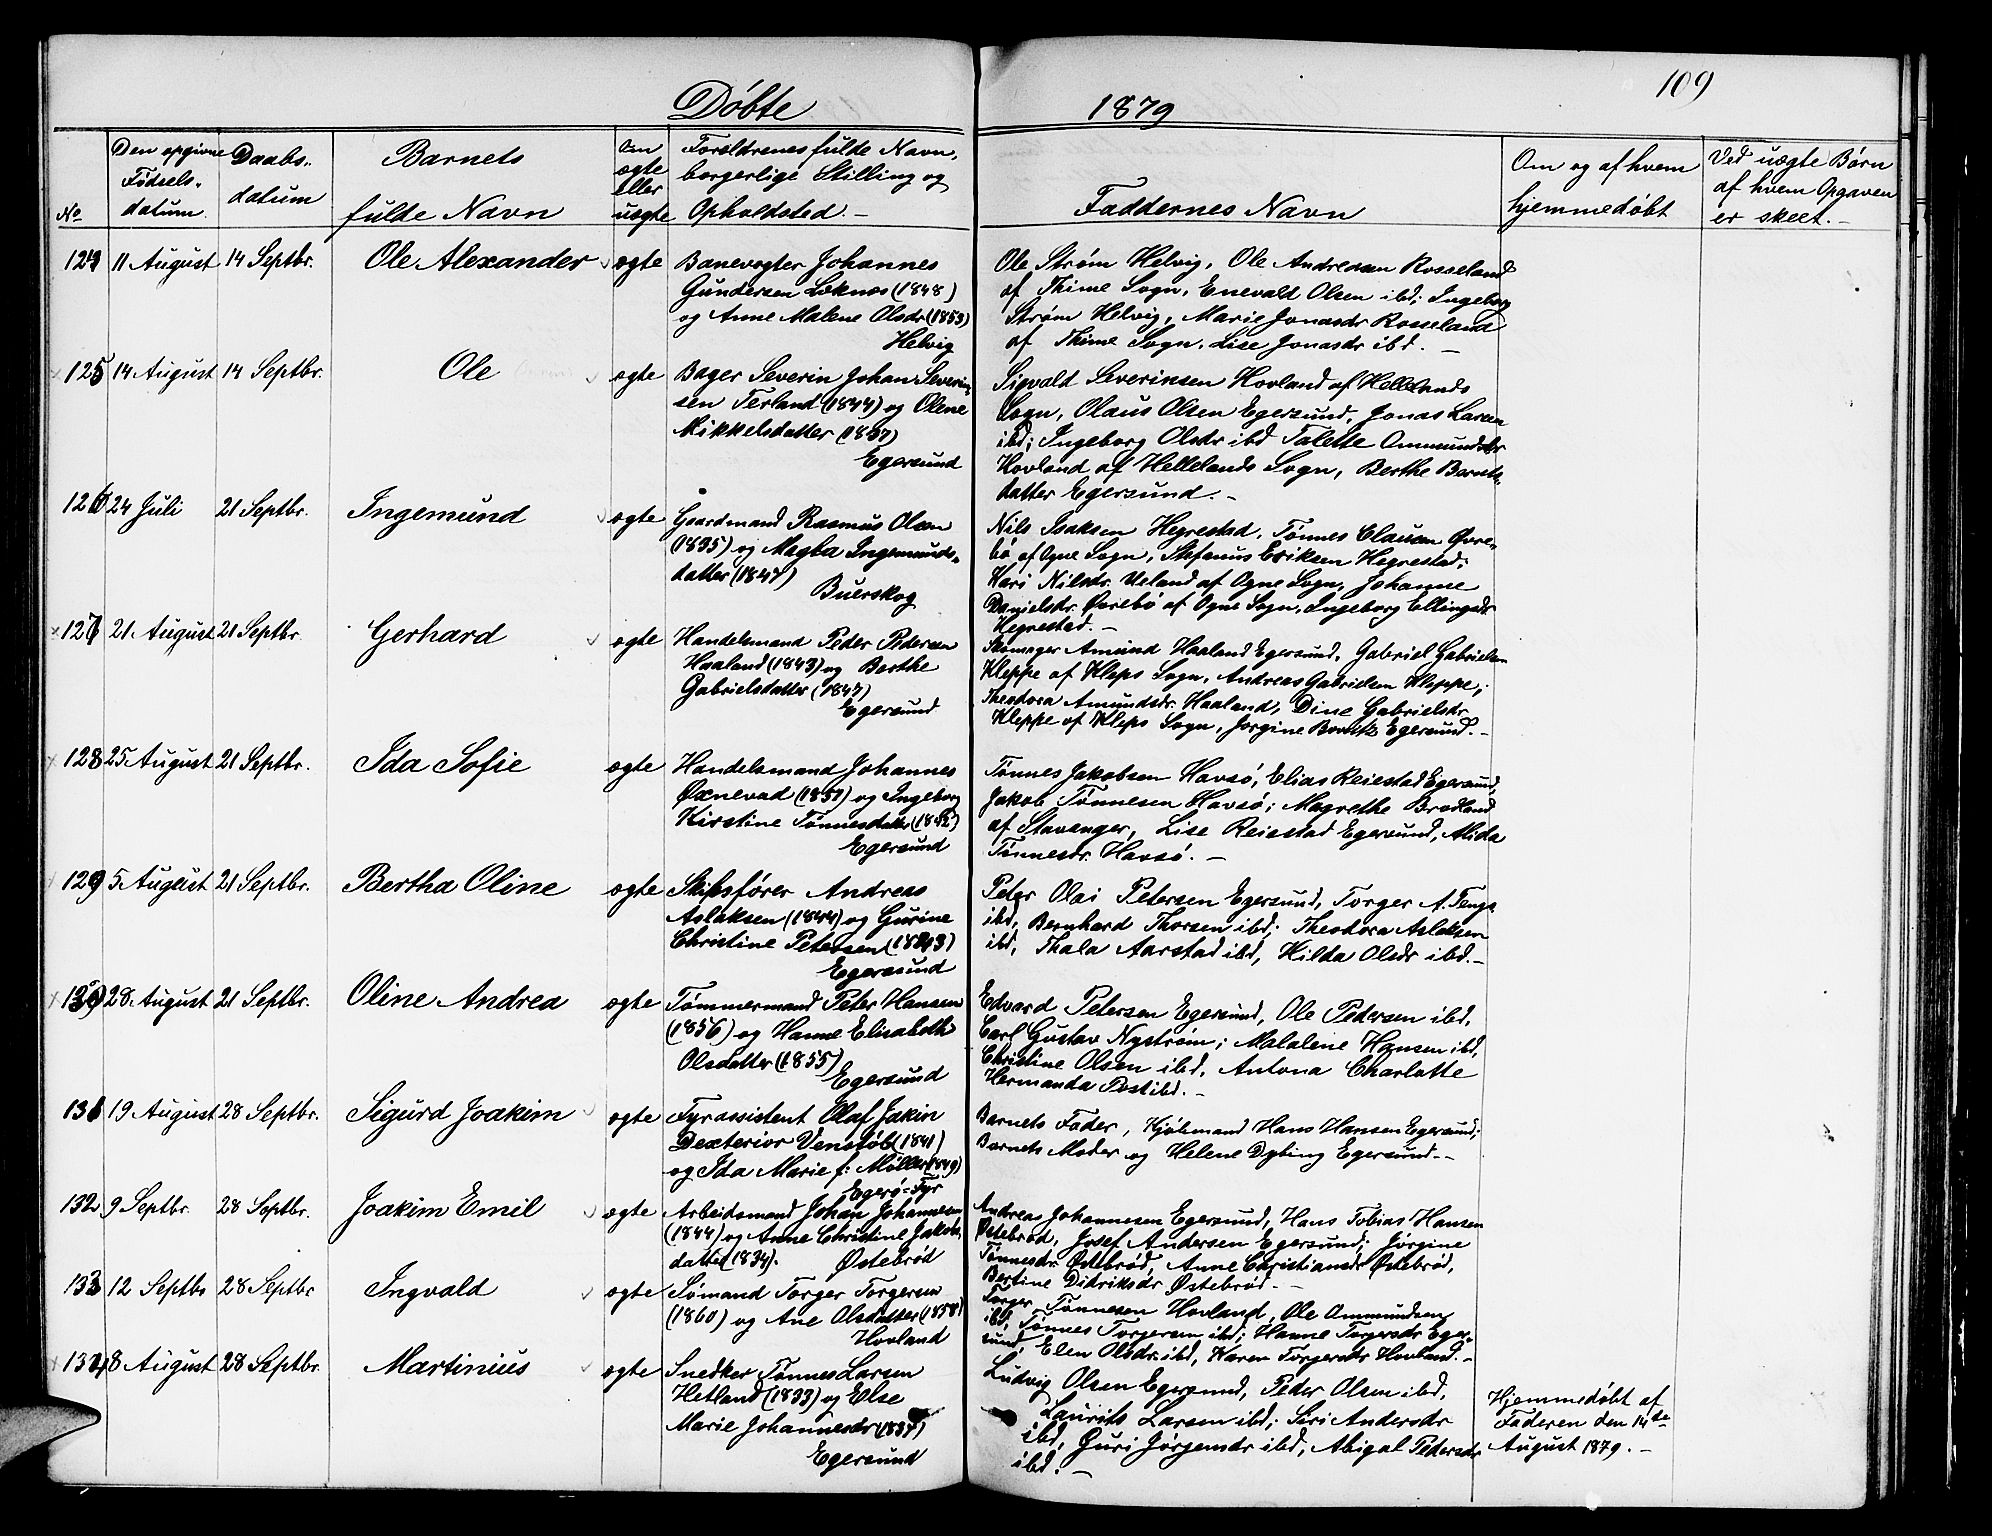 109
Døbte 1879
No
Den opgivne Fødsels-datum.
Daabs-datum
Barnets fulde Navn
Om ægte eller uægte
Forældrenes fulde Navn, borgerlige Stilling og Opholdsted.-
Faddernes Navn
Om og af hvem hjemmedøbt
Ved uægte Børn af hvem Opgaven er skeet.-
124 11 August 14 Septbr. Ole Alexander ægte
Banevogter Johannes
Gundersen Leknæs (1848)
og Anne Malene Olsdr (1853)
Helvig
Ole Strøm Helvig, Ole Andreasen Rosseland
af Thime Sogn, Enevald Olsen ibd; Ingeborg
Strøm Helvig, Marie Jonasdr Rosseland
af Thime Sogn, Lise Jonasdr ibd. -
125 14 August 14 Septbr. Ole ægte
Bager Severin Johan Severin-
sen Terland (1844) og Olene
Mikkelsdatter (1837)
Egersund
Sigvald Severinsen Hovland af Hellelands
Sogn, Olaus Olsen Egersund, Jonas Larsen
ibd; Ingeborg Olsdr ibd Talette Ommundsdr
Hovland af Hellelands Sogn, Berthe Barnts-
datter Egersund. -
126 24 Juli 21 Septbr. Ingemund ægte
Gaardmand Rasmus Olsen
(1835) og Magla Ingemunds-
datter (1847)
Buerskog
Nils Isaksen Hegrestad, Tønnes Clausen Øvre-
bø af Ogne Sogn, Stefanus Eriksen Hegrestad;
Kari Nilsdr. Veland af Ogne Sogn, Johanne
Danielsdr. Øvrebø af Ogne Sogn, Ingeborg Ellingsdr
Hegrestad. -
127 21 August 21 Septbr. Gerhard ægte
Handelsmand Peder Pedersen
Haaland (1843) og Berthe
Gabrielsdatter (1847)
Egersund
Skomager Amund Haaland Egersund, Gabriel Gabrielsen
Kleppe af Kleps Sogn, Andreas Gabrielsen Kleppe;
Theodora Amundsdr. Haaland, Dine Gabrielsdr
Kleppe af Kleps Sogn, Jorgine Egersund. -
128 25 August 21 Septbr. Ida Sofie ægte
Handelsmand Johannes
Øxnevad (1851) og Ingeborg
Kirstine Tønnesdatter (1852)
Egersund
Tønnes Jakobsen Havsø, Elias Reiestad Egersund,
Jakob Tønnesen Havsø; Magrethe Brodland
af Stavanger, Lise Reiestad Egersund, Alida
Tønnesdr. Havsø. -
129 5 August 21 Septbr. Bertha Oline ægte
Skibsfører Andreas
Aslaksen (1844) og Gurine
Christine Petersen (1843)
Egersund
Peter Olai Petersen Egersund, Torger A. Tengs
ibd, Bernhard Thorsen ibd; Theodora Aslaksen
ibd, Thala Aarstad ibd, Hilda Olsdr ibd. -
130 28 August 21 Septbr. Oline Andrea ægte
Tømmermand Peter Hansen
(1856) og Hanne Elisabeth
Olsdatter (1855)
Egersund
Edvard Petersen Egersund, Ole Pedersen ibd,
Carl Gustav Nystrøm; Malalene Hansen ibd,
Christine Olsen ibd, Antona Charlotte
Hermanda Post ibd. -
131 19 August 28 Septbr. Sigurd Joakim ægte
Fyrassistent Olaf Jakin
Dexterior Venstøb (1841)
og Ida Marie f: Møller (1849)
Egerø-Fyr
Barnets Fader, Kjøbmand Hans Hansen Egersund;
Barnets Moder og Helene Dybing Egersund. -
132 9 Septbr. 28 Septbr. Joakim Emil ægte
Arbeidsmand Johan Johannesen
(1844) og Anne Christine Jakobs-
datter (1834). Østebrød
Andreas Johannesen Egersund, Hans Tobias Hansen
Østebrød, Josef Andersen Egersund; Jørgine
Tønnesdr. Østebrød, Anne Christiansdr Østebrød,
Bertine Didriksdr Østebrød. -
133 12 Septbr 28 Septbr Ingvald ægte
Sømand Torger Torgersen
(1860) og Ane Olsdatter (1858)
Hovland
Torger Tønnesen Hovland, Ole Ommundsen
ibd, Tønnes Torgersen ibd; Hanne Torgersdr Eger-
sund, Elen Olsdr. ibd, Karen Torgersdr Hovland. -
134 8 August 28 Septbr. Martinius ægte
Snedker Tønnes Larsen
Hetland (1833) og Else
Marie Johannesdr (1837)
Egersund
Ludvig Olsen Egersund, Peder Olsen ibd,
Laurits Larsen ibd; Siri Andersdr
ibd, Guri Jørgensdr ibd, Abigal Pedersdr
ibd. -
Hjemmedøbt af
Faderen den 14de
August 1879. -